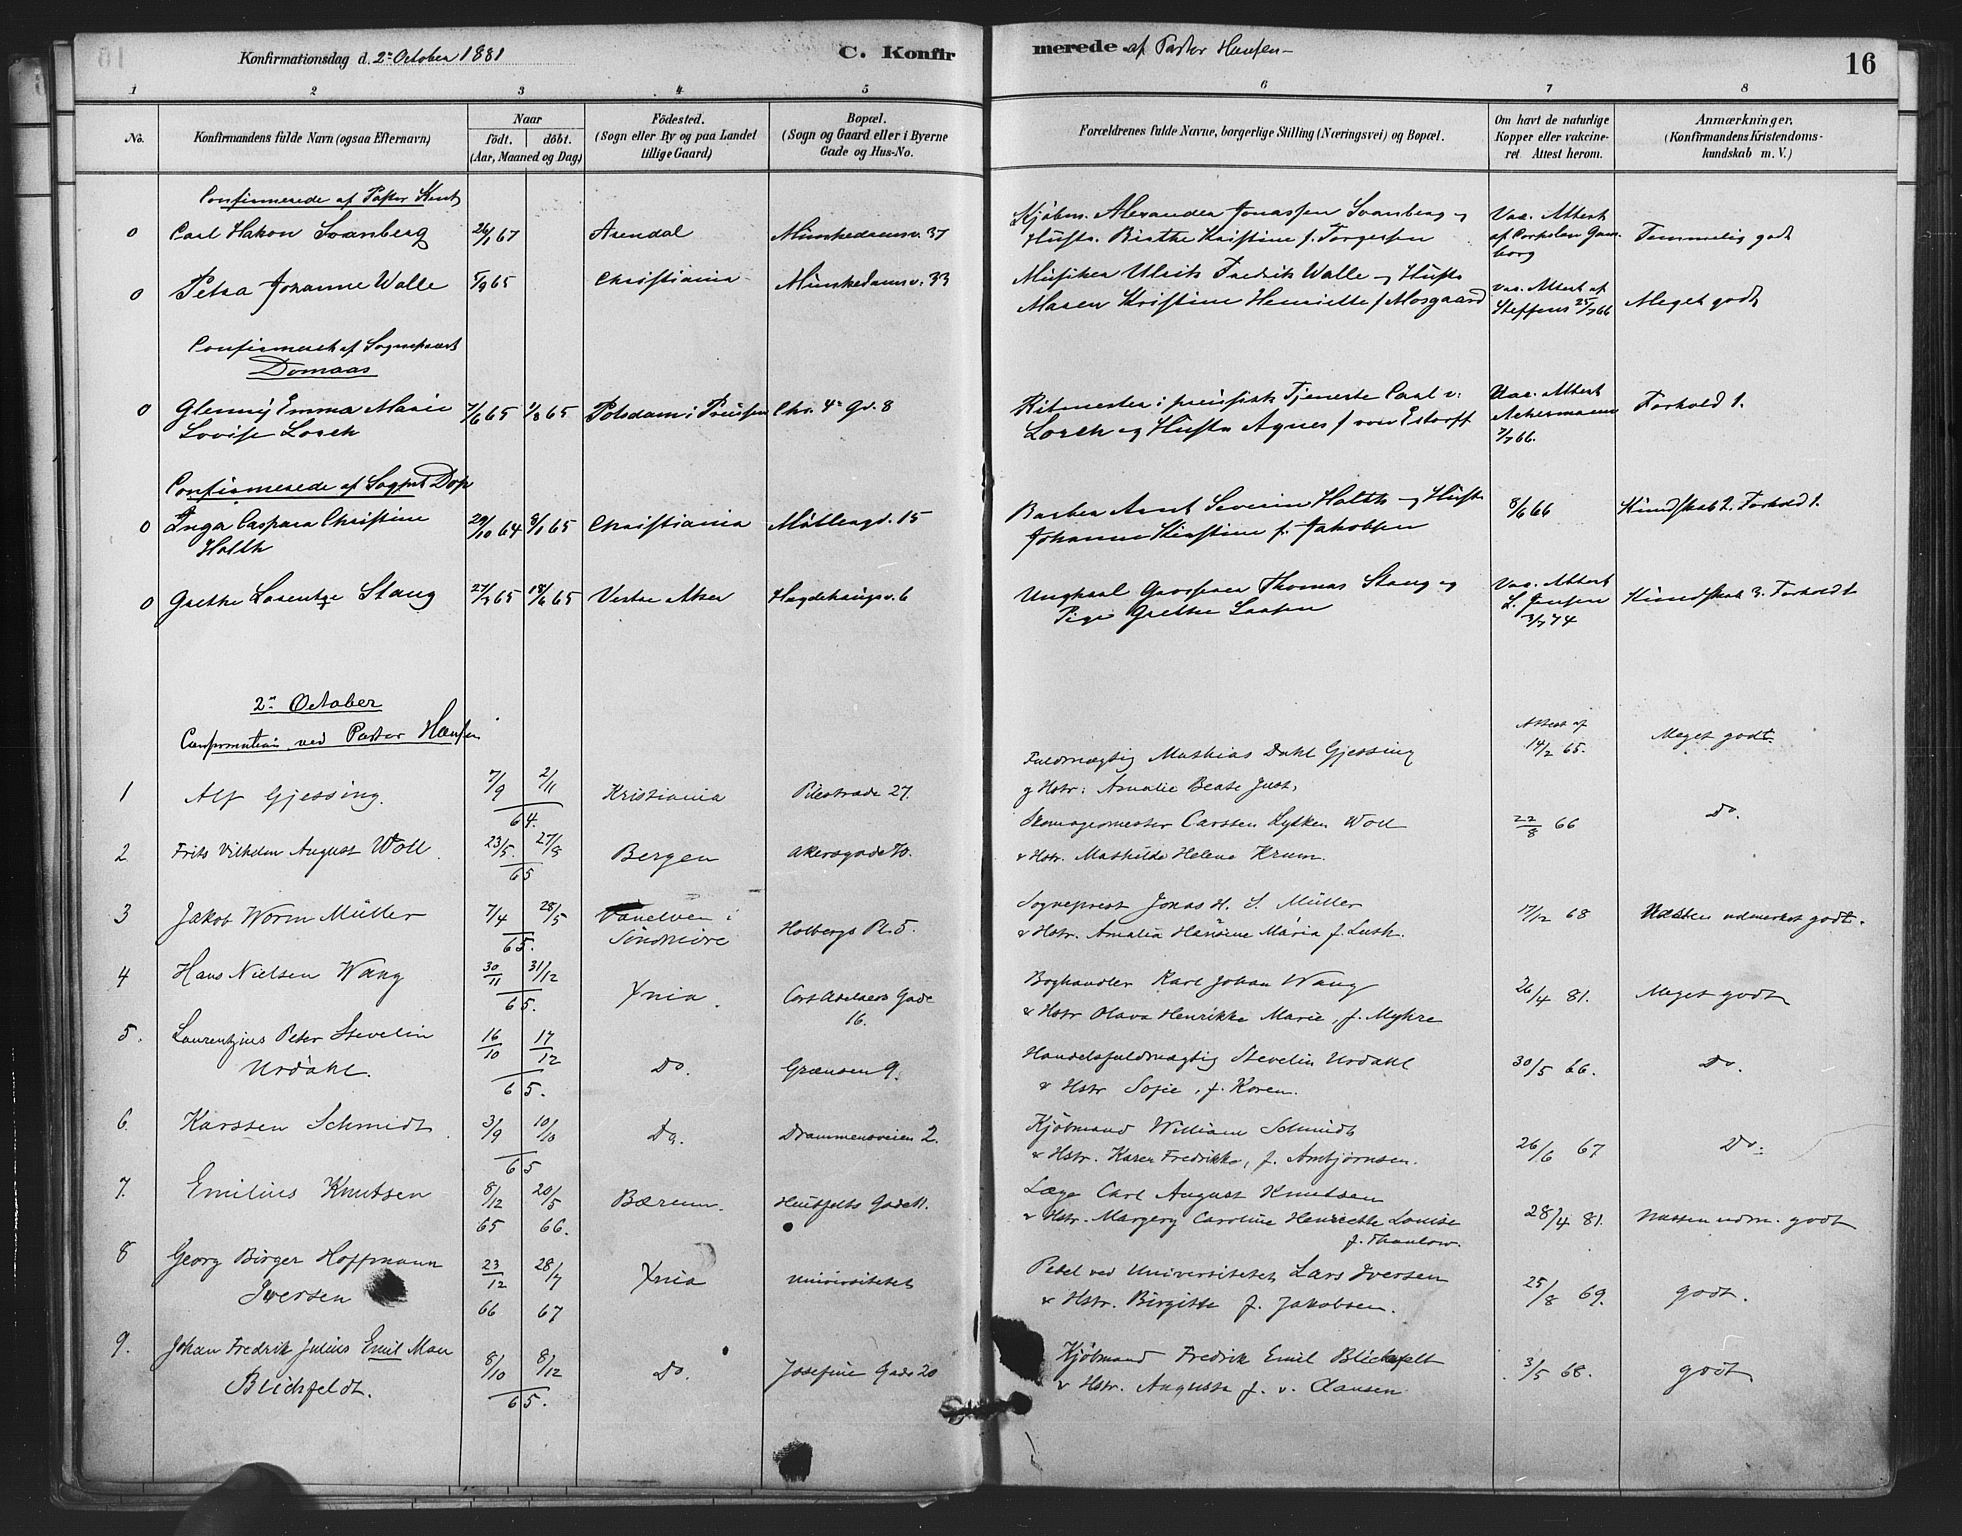 Konfirmationsdag d. 2n October 1881
C. Konfirmerede af Pastor Hansen
16
1 2 3 4 5 6 7 8
No.
Konfirmandens fulde Navn (ogsaa Efternavn)
Naar
födt. döbt.
(Aar, Maaned og Dag)
Födested.
(Sogn eller By og paa Landet
tillige Gaard)
Bopæl.
(Sogn og Gaard eller i Byerne
Gade og Hus-No.
Forældrenes fulde Navne, borgerlige Stilling (Næringsvei) og Bopæl.
Om havt de naturlige
Kopper eller vakcine-
ret. Attest herom.
Anmærkninger.
(Konfirmandens Kristendoms-
kundskab m. V.)
Confirmerede af Pastor
0 Carl Hakon Svanberg 26/1 67 Arendal Munkedamsv. 37
Kjöbm. Alexander Jonassen Svanberg og
Hustr. Birthe Kristine f. Torgersen
Vac. Attest
Temmelig godt
0 Petra Johanne Walle 5/9 65 Christiania Munkedamsv. 33
Musiker Ulrik Fredrik Walle og Hustr
Maren Kristine Henriette f Mosgaard
Vac. Attest af
Steffens 25/7 66
Meget godt
Confirmeret af Sognepræst
Domaas
0 Glenny Emma Marie 7/6 65 1/8 65 Potsdam i Preussen Chr. 4s Gd. 8
Lovise Lorck
Ritmester i preusisk Tjeneste Carl v.
Lorck og Hustr Agnes f von Estorff
Vac. Attest
Ackermann
7/7 66.
Forhold 1.
Confirmerede af Sognpr Dop
0 Inga Caspara Christine 29/10 64 8/1 65 Christiania Möllergd. 15
Holth
Barber Arnt Severin Holth og Hustr
Johanne Kirstine f. Jakobsen
8/6 66
Kundskab 2. Forhold 1.
0 Grethe Lorentze Stang 27/3 65 18/6 65 Vestre Aker Hegdehaugsv. 6
Ungkarl Thomas Stang og
Pige Grethe Larsen
Vac. Attest
L. Jensen
3/7 74
Kundskab 3. Forhold 1
2n October
Confirmation ved Pastor Hansen
1 Alf Gjessing. 7/9 2/11 64. Kristiania Pilestræde 27.
Fuldmægtig Mathias Dahl Gjessing
og Hstr: Amalie Beate Just.
Attest af
14/2 65.
Meget godt.
2 Frits Vilhelm August Woll. 23/5. 27/8 65 Bergen Akersgade 70.
Skomagermester Carsten Lykken Woll
& Hstr. Mathilde Helene Krum.
22/8 66
Do.
3 Jakob Worm Müller 7/4 28/5 65. Vanelven i
Söndmöre
Holbergs Pl. 5.
Sogneprest Jonas H. S. Müller
& Hstr. Amalia Hansine Maria f. Lush.
17/12 68
Næsten udmerket godt.
4 Hans Nielsen Wang 30/11 31/12 65. Xnia. Cort Adelers Gade
16.
Boghandler Karl Johan Wang
& Hstr Olava Henrikke Marie, f. Myhre
26/4 81.
Meget godt
5. Laurentzius Peter Stevelin 16/10 17/12 65. Do. Grændsen 9.
Urdahl.
Handelsfuldmægtig Stevelin Urdahl
& Hstr Sofie, f. Koren.
30/5 66.
Do.
6. Karsten Schmidt. 3/9 10/10 65 Do. Drammensveien 2.
Kjöbmand William Schmidt
& Hstr. Karen Fredrikke, f. Ambjörnsen.
26/6 67
Do.
7. Emilius Knutsen 8/12 65 20/5 66. Bærum. Huitfelts Gade 11.
Læge Carl August Knutsen
& Hstr. Margery Caroline Henriette Louise
f. Thaulow.
28/4 81.
Næsten udm. godt
8 Georg Birger Hoffmann 23/12 66 28/7 67 Xnia Universitetet
Iversen
Pedel ved Universitetet Lars Iversen
& Hstr. Birgitte f. Jakobsen.
25/8 69.
godt.
9. Johan Fredrik Julius Emil Mau 8/10 8/12 65. Do. Josefine Gade 20
Blichfeldt.
Kjöbmand Fredrik Emil Blichfelt
& Hstr. Augusta f. v. Clausen.
3/5 68.
godt